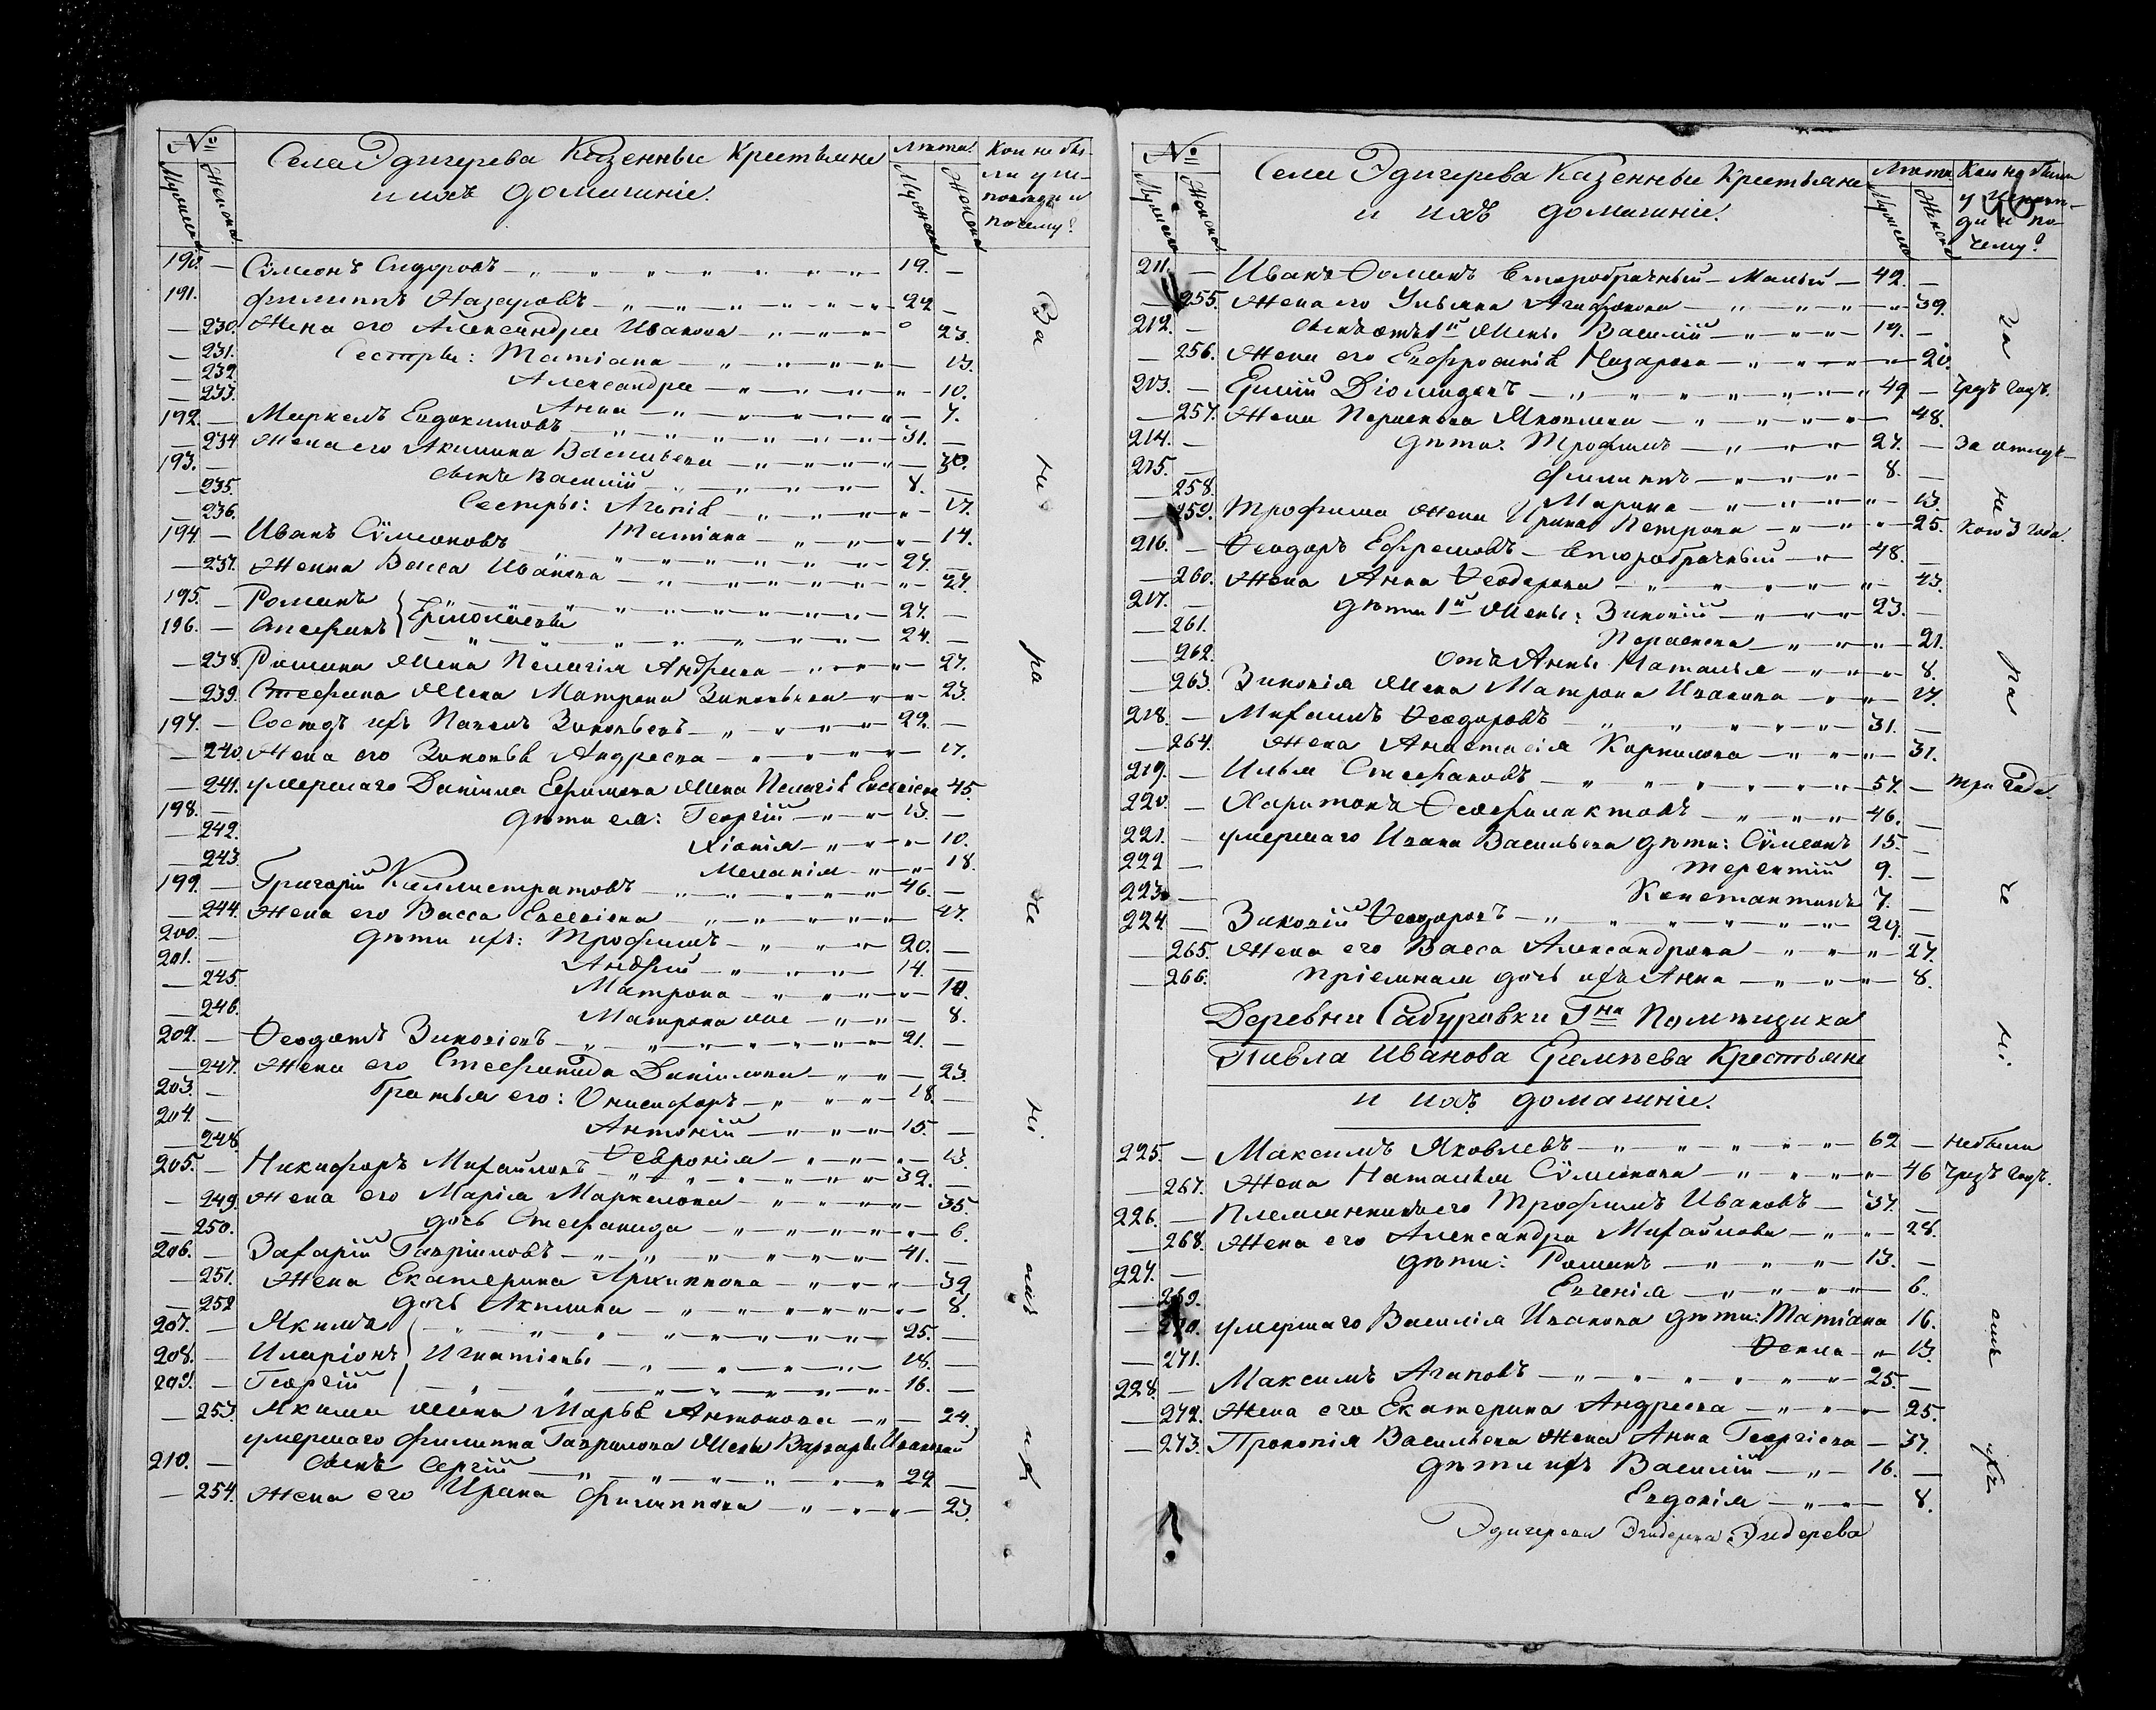 № Села Эдигерева Казенные Крестьяне Лѣта. Кои не бы-
и ихъ домашніе. ли у ис-
повѣди и
почему?
Мужеска Женска Мужеска Женска
190. — Сѵмеонъ Сидоровъ — 19. —
191. Филиппъ Назаровъ — 22. —
— 230. Жена его Александра Иванова — 23.
— 231. Сестры: Татіана — 13.
— 232. Александра — 10.
— 233. Анна — 7.
192. — Маркелъ Евдокимовъ — 31. —
— 234 Жена его Акилина Васильева — 30.
193. — сынъ Василій — 8. —
— 235. Сестры: Агапія — 17.
— 236. Татіана — 14.
194. — Иванъ Сѵмеоновъ — 27. —
— 237. Женна Васса Иванова — 27.
195. — Романъ — 27. —
196. — Стефанъ } Ермолаевы — 24. —
— 238. Романа жена Пелагія Андреева — 27.
— 239. Стефана жена Матрона Зиновьева — 23.
197. — Сосѣдъ ихъ Павелъ Зиновьевъ — 22. —
— 240. Жена его Зиновья Андреева — 17.
— 241. умершаго Даніила Ефимова жена Пелагія Евсевіева 45.
198. — дѣти ея: Георгій — 13. —
— 242. Хіонія — 10.
— 243 Меланія — 18.
199. — Григорій Каллистратовъ — 46. —
— 244. Жена его Васса Евсевіева — 47.
200. — дѣти ихъ: Трофимъ — 20. —
201. — Андрей — 14. —
— 245. Матрона — 10.
— 246. Матрона же — 8.
202. — Ѳеодотъ Зиновіевъ — 21. —
— 247. Жена его Стефанида Даніилова — 23.
203. — Братья его: Онисифоръ — 18. —
204. — Антоній — 15. —
— 248. Ѳевронія — 13.
205. — Никифоръ Михайловъ — 32. —
— 249. Жена его Марія Маркелова — 35.
— 250. дочь Стефанида — 6.
206. — Захарій Гавриловъ — 41. —
— 251. Жена Екатерина Архиппова — 39
— 252 дочь Акилина — 8.
207. — Якимъ — 25. —
208. — Иларіонъ } Игнатіевы — 18. —
209. — Георгій — 16. —
— 253. Якима жена Марья Антонова — 24.
умершаго Филиппа Гаврилова жены Варвары Ивановой
210. — сынъ Сергій — 22 —
— 254. Жена его Ирина Филиппова — 23.
За
не
ра
че
ні
емъ
ихъ
№ Села Эдигерева Казенные Крестьяне Лѣта. Кои не были
и ихъ домашніе. у исповѣ-
ди и по-
чему?
Мужеска Женска Мужеска Женска
211. — Иванъ Ѳоминъ второбрачный — Малый — 42. —
— 255. Жена его Ульяна Агафонова — 39.
212. — сынъ отъ 1й жены Василій — 19. —
— 256. Жена его Евфросинія Назарова — 20.
213. — Ермій Діомидовъ — 49 — Чрезъ годъ.
— 257. Жена Парасковья Яковлева — 48.
214. — дѣти: Трофимъ — 27. — За отлуч-
215. — Филиппъ — 8. —
— 258. Марина — 13.
— 259. Трофима жена Ирина Петрова — 25. кою 3 года.
216. — Ѳеодоръ Ефремовъ — второбрачный — 48. —
— 260. Жена Анна Ѳеодорова — 43.
217. — дѣти 1й жены: Зиновій — 23. —
— 261. Параскева — 21.
— 262. отъ Анны Наталья — 8.
— 263. Зиновія жена Матрона Иванова — 17.
218. — Михаилъ Ѳеодоровъ — 31. —
— 264. Жена Анастасія Корнилова — 31.
219. — Илья Стефановъ — 57. — три года.
220. — Харитонъ Ѳеофилактовъ — 46. —
221. — умершаго Ивана Васильева дѣти: Сѵмеонъ 15. —
222 — Терентій 9. —
223. — Константинъ 7. —
224. — Зиновій Ѳеодоровъ — 29. —
— 265. Жена его Васса Александрова — 27.
— 266. Пріемная дочь ихъ Анна — 8.
Деревни Сабуровки Гна Помѣщика
Павла Иванова Еремѣева Крестьяне
и ихъ домашніе.
225. — Максимъ Яковлевъ — 62 — не были
— 267. Жена Наталья Сѵмеонова — 46 Чрезъ годъ.
226. — Племянникъ его Трофимъ Ивановъ — 37. —
— 268. Жена его Александра Михайлова — 28.
227. — дѣти: Романъ — 13. —
— 269. Евгенія — 6.
— 270. умершаго Василія Иванова дѣти: Татіана 16.
— 271. Ѳекла — 13.
228. — Максимъ Агаповъ — 25. —
— 272. Жена его Екатерина Андреева — 25.
— 273. Прокопія Васильева жена Анна Георгіева — 37.
дѣти ихъ Василій — 16. —
Евдокія — 8.
Эдигерева Эгидерева Эгидерева
За
не
ра
че
ні
емъ
ихъ